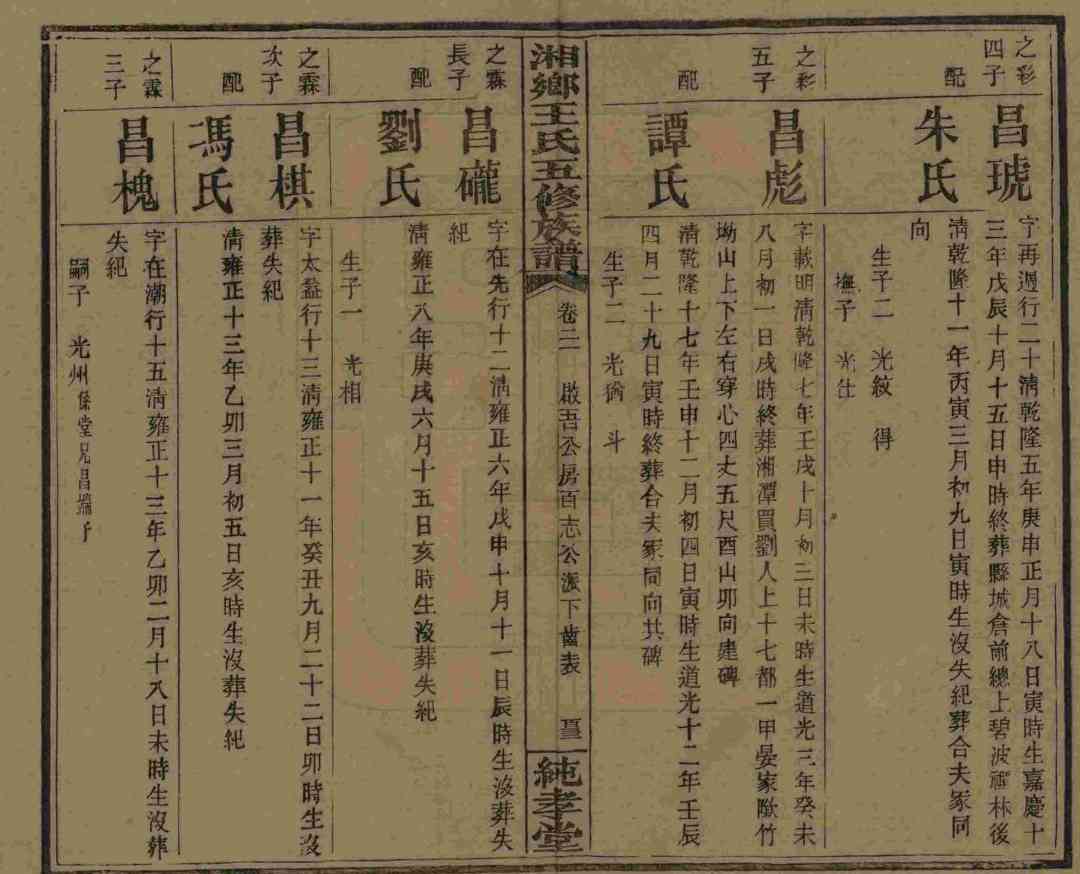 之彩
四子
昌琥
字再週行二十清乾隆五年庚申正月十八日寅時生嘉慶十
三年戊辰十月十五日申時終葬縣城倉前總上碧波禪林後
配
朱氏
清乾隆十一年丙寅三月初九日寅時生沒失紀葬合夫冢同
向
生子二 光紋 得
撫子 光仕
之彩
五子
昌彪
字載明清乾隆七年壬戌十月初三日未時生道光三年癸未
八月初一日戌時終葬湘潭買劉人上十七都一甲晏家歐竹
坳山上下左右穿心四丈五尺酉山卯向建碑
配
譚氏
清乾隆十七年壬申十二月初四日寅時生道光十二年壬辰
四月二十九日寅時終葬合夫冢同向共碑
生子二 光猶 斗
湘鄉王氏五修族譜
卷二 啟吾公房百志公派下齒表
純孝堂
之霖
長子
昌礲
字在先行十二清雍正六年戊申十月十一日辰時生沒葬失
紀
配
劉氏
清雍正八年庚戌六月十五日亥時生沒葬失紀
生子一 光相
之霖
次子
昌棋
字太益行十三清雍正十一年癸丑九月二十二日卯時生沒
葬失紀
配
馮氏
清雍正十三年乙卯三月初五日亥時生沒葬失紀
之霖
三子
昌槐
字在潮行十五清雍正十三年乙卯二月十八日未時生沒葬
失紀
嗣子 光州係堂兄昌子